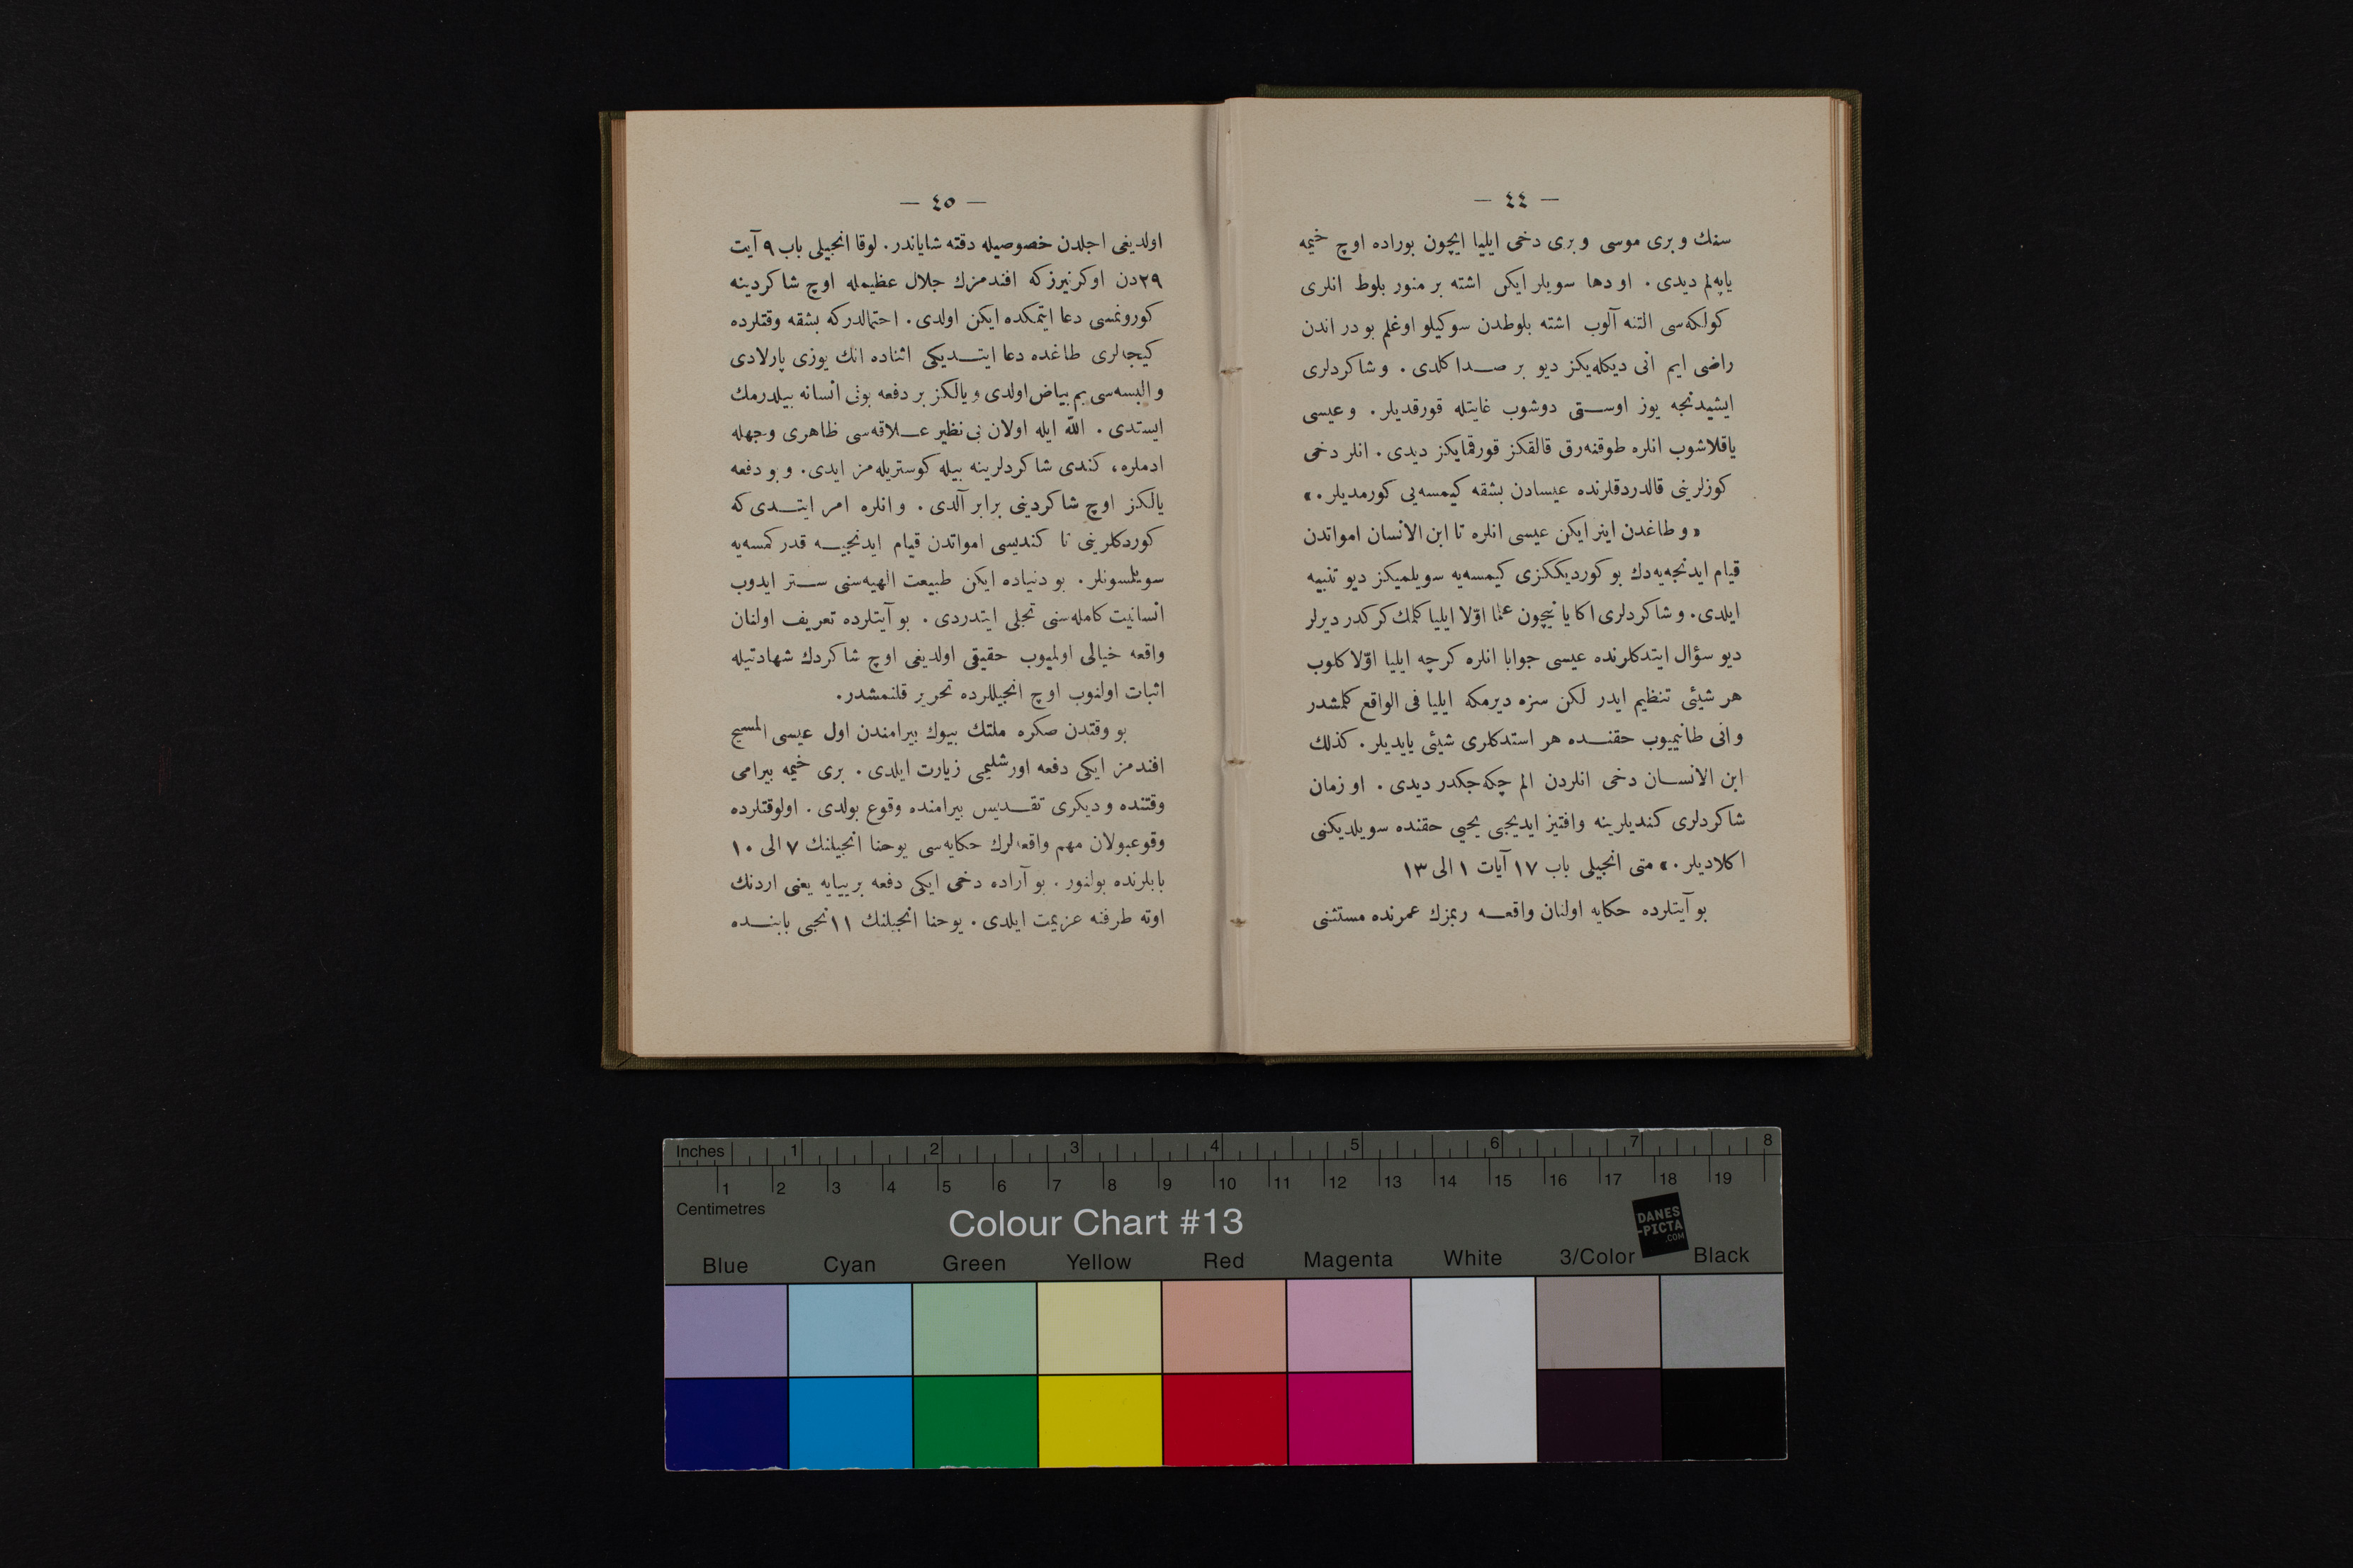 — ٤٤ —
سنك و بری موسی و بری دخی ایلیا ایچون بوراده اوچ خیمه
یاپه‌لم دیدی . او دها سویلر ایکن اشته بر منور بلوط انلری
کولکه‌سی التنه آلوب اشته بلوطدن سوکیلو اوغلم بو در اندن
راضی ایم انی دیکله‌یکز دیو بر صدا کلدی . و شاکردلری
ایشیدنجه یوز اوستی دوشوب غایتله قورقدیلر . و عیسی
یاقلاشوب انلره طوقنه‌رق قالقکز قورقمایکز دیدی . انلر دخی
کوزلرینی قالدردقلرنده عیسادن بشقه کیمسه‌یی کورمدیلر . »
« و طاغدن اینر ایکن عیسی انلره تا ابن الانسان امواتدن
قیام ایدنجه‌یه‌دك بو کوردیککزی کیمسه‌یه سویلمیکز دیو تنبیه
ایلدی. و شاکردلری اکا یا نیچون علما اوّلا ایلیا کلمك کرکدر دیرلر
دیو سؤال ایتدکلرنده عیسی جوابا انلره کرچه ایلیا اوّلا کلوب
هر شیئی تنظیم ایدر لکن سزه دیرمکه ایلیا فی الواقع کلمشدر
و انی طانیمیوب حقنده هر استدکلری شیئی یاپدیلر . کذلك
ابن الانسان دخی انلردن الم چکه‌جکدر دیدی . او زمان
شاکردلری کندیلرینه وافتیز ایدیجی یحیی حقنده سویلدیکنی
اکلادیلر . » متی انجیلی باب ١٧ آیات ١ الی ١٣
بو آیتلرده حکایه اولنان واقعه ربمزك عمرنده مستثنی
— ٤٥ —
اولدیغی اجلدن خصوصیله دقته شایاندر. لوقا انجیلی باب ٩ آیت
٢٩دن اوکرنیرزکه افندمزك جلال عظیمله اوچ شاکردینه
کورونمسی دعا ایتمکده ایکن اولدی. احتمالدرکه بشقه وقتلرده
کیجه‌لری طاغده دعا ایتدیکی اثناده انك یوزی پارلادی
و البسه‌سی بم بیاض اولدی و یالکز بر دفعه بونی انسانه بیلدرمك
ایستدی . اللّه ایله اولان بی نظیر علاقه‌سی ظاهری وجهله
ادملره، کندی شاکردلرینه بیله کوستریله‌مز ایدی. و بو دفعه
یالکز اوچ شاکردینی برابر آلدی . و انلره امر ایتدی که
کوردکلرینی تا کندیسی امواتدن قیام ایدنجیه قدر کمسه‌یه
سویلمسونلر. بو دنیاده ایکن طبیعت الهیه‌سنی ستر ایدوب
انسانیت کامله‌سنی تجلی ایتدردی . بو آیتلرده تعریف اولنان
واقعه خیالی اولمیوب حقیقی اولدیغی اوچ شاکردك شهادتیله
اثبات اولنوب اوچ انجیللرده تحریر قلنمشدر.
بو وقتدن صکره ملتك بیوك بیرامندن اول عیسی المسیح
افندمز ایکی دفعه اورشلیمی زیارت ایلدی . بری خیمه بیرامی
وقتنده و دیکری تقدیس بیرامنده وقوع بولدی . اولوقتلرده
وقوعبولان مهم واقعه‌لرك حکایه‌سی یوحنا انجیلنك ٧ الی ١٠
بابلرنده بولنور . بو آراده دخی ایکی دفعه بریپایه یعنی اردنك
اوته طرفنه عزیمت ایلدی . یوحنا انجیلنك ١١نجی بابنده
Inches 1 2 3 4 5 6 7 8
1 2 3 4 5 6 7 8 9 10 11 12 13 14 15 16 17 18 19
Centimetres
Colour Chart #13
DANES
-PICTA
.COM
Blue Cyan Green Yellow Red Magenta White 3/Color Black